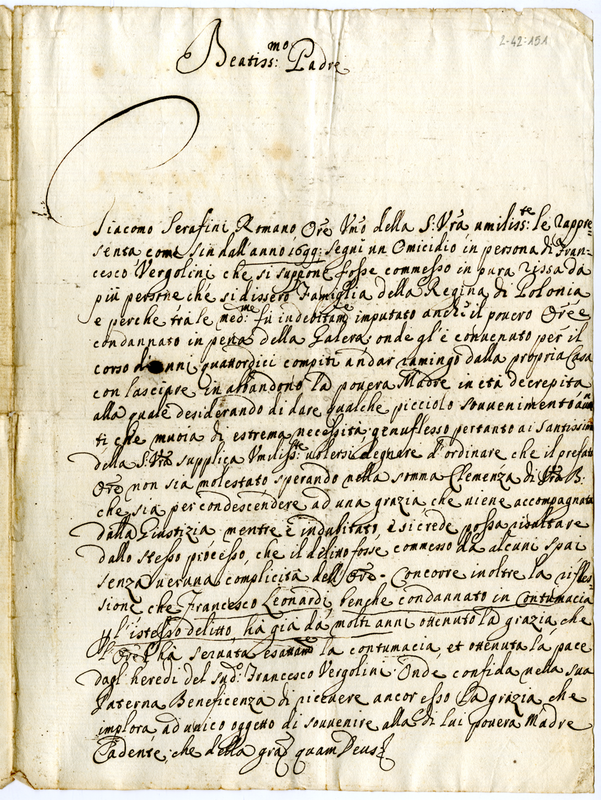 2-42-151
Beatiss:mo Padre
Giacomo Serafini Romano Ore Vmo della S: Vra umiliss:te le rappre=
senta come sin dall'anno 1699: seguì un Omicidio in persona di Fran=
cesco Vergolini che si suppone fosse commesso in pura rissa da
più persone che si dissero Famiglia della Regina di Polonia
e perche trà le med:me fù indebitamte imputato anch'il povero Ore e
condannato in pena della Galera: onde gl'è convenuto per il
corso di anni quattordici compiti andar ramingo dalla propria Casa
con lasciare in abbandono la povera Madre in età decrepita
alla quale desiderando di dare qualche picciolo souvenimento
ti che muoia di estrema necessità genuflesso pertanto ai Santissimi
della S: Vra supplica Umiliss:te volersi degnare d'ordinare che il prefato
Ore non sia molestato sperando nella somma Clemenza di Vra B:
che sia per condescendere ad una grazia, che viene accompagnata
dalla Giustizia mentre è indubitato, e si crede possa risultare
dallo stesso processo, che il delitto fosse commesso da alcuni
senza veruna complicità dell'Ore - Concorre inoltre la rifles=
sione che Francesco Leonardi, benche condannato in Contumacia
p l'istesso delitto, hà già da molti anni ottenuto la grazia, che
l'Ore hà servata esattamte la contumacia, et ottenuta la pace
dagl'heredi del sud:o Francesco Vergolini. Onde confida nella sua
Paterna Beneficenza di ricevere ancor esso la grazia, che
implora, ad unico oggetto di souvenire alla di lui povera Madre
Cadente, che della graz quam Deus